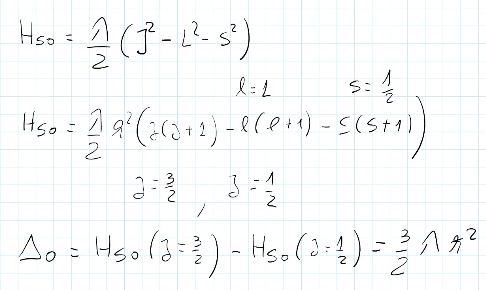 H_SO = λ/2 (J² - L² - S²)
l=1 s=1/2
H_SO = λ/2 ħ² (j(j+1) - l(l+1) - s(s+1))
j=3/2 , j=1/2
Δ_0 = H_SO (j=3/2) - H_SO (j=1/2) = 3/2 λ ħ²